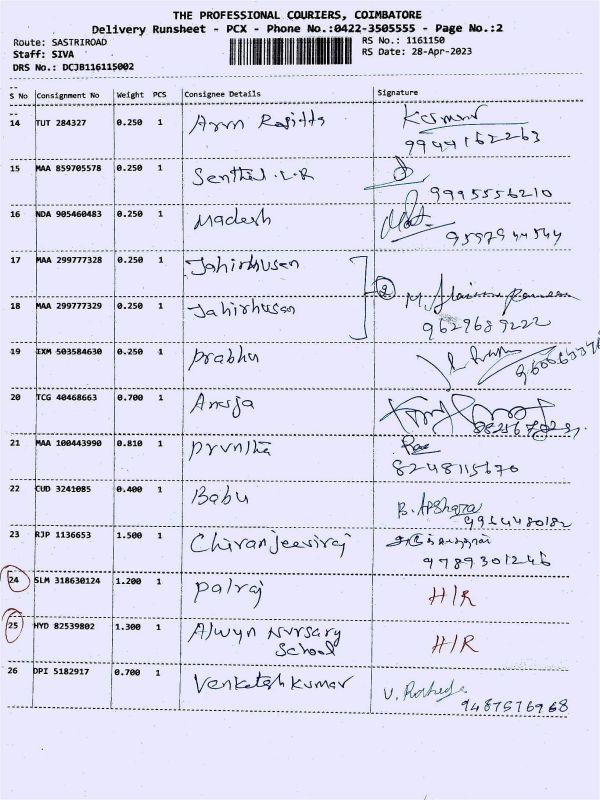 THE PROFESSIONAL COURIERS, COIMBATORE
Delivery Runsheet - PCX - Phone No.:0422-3505555 - Page No.:2
Route: SASTRIROAD RS No.: 1161150
Staff: SIVA RS Date: 28-Apr-2023
DRS No.: DCJB116115002
S No Consignment No Weight PCS Consignee Details Signature
14 TUT 284327 0.250 1 Arun Rajitta Kumar
9944162263
15 MAA 859705578 0.250 1 Senthil .L.R
9995556210
16 NDA 905460483 0.250 1 Madesh
9597944544
17 MAA 299777328 0.250 1 Jahirhusen
2
18 MAA 299777329 0.250 1 Jahirhusan M.
9629689222
19 IXM 503584630 0.250 1 Prabhu
20 TCG 40468663 0.700 1
21 MAA 100443990 0.810 1
8248115670
22 CUD 3241085 0.400 1 Babu B. Apshara
9914480182
23 RJP 1136653 1.500 1 Chiranjeeviraj
9789301246
24 SLM 318630124 1.200 1 Palraj H/R
25 HYD 82539802 1.300 1 Alwyn Nursary H/R
School
26 DPI 5182917 0.700 1 Venkatesh Kumar V.
9487576968